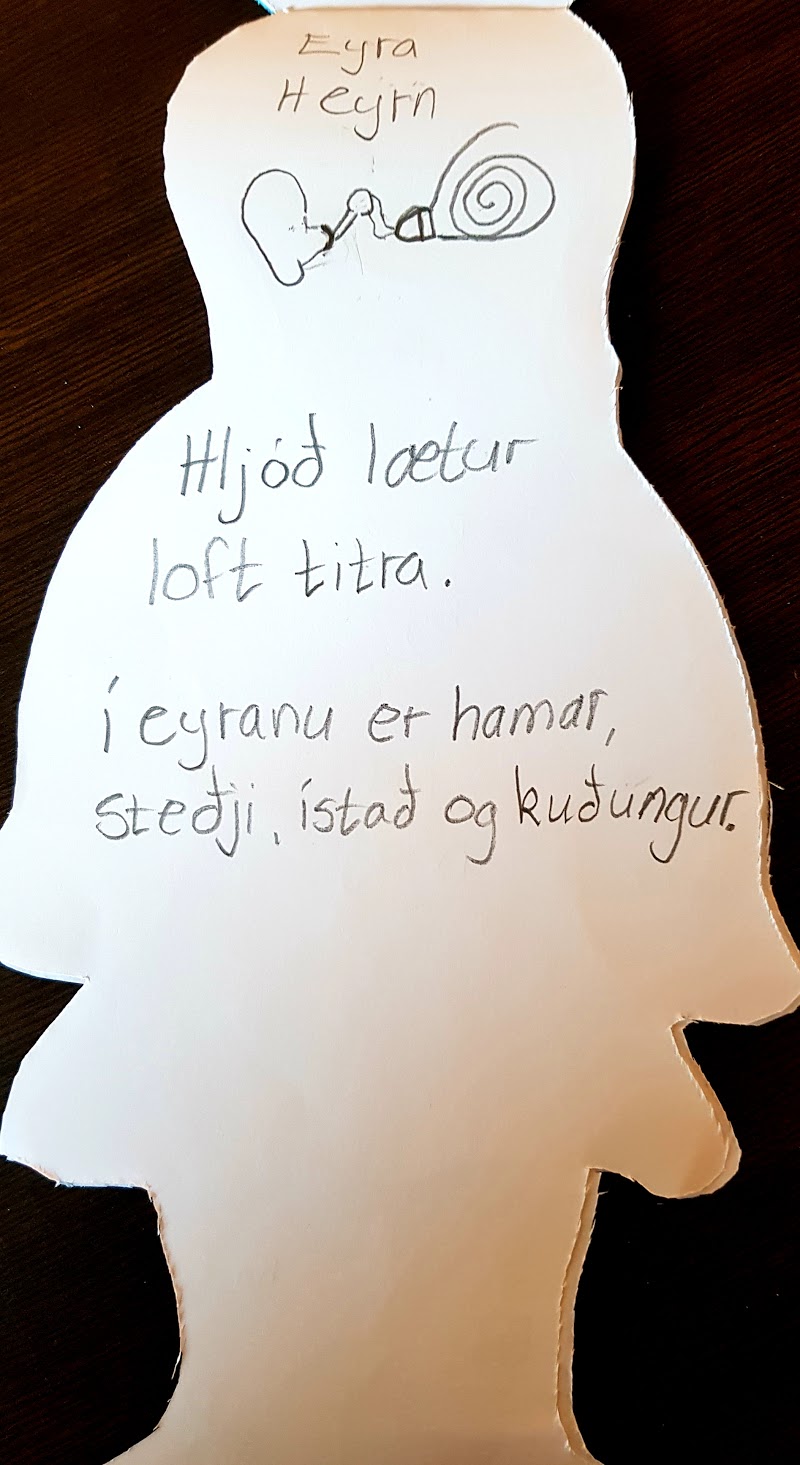 Eyra
Heyrn
Hljóð lætur
loft titra.
í eyranu er hamar,
steðji, ístað og kuðungur.